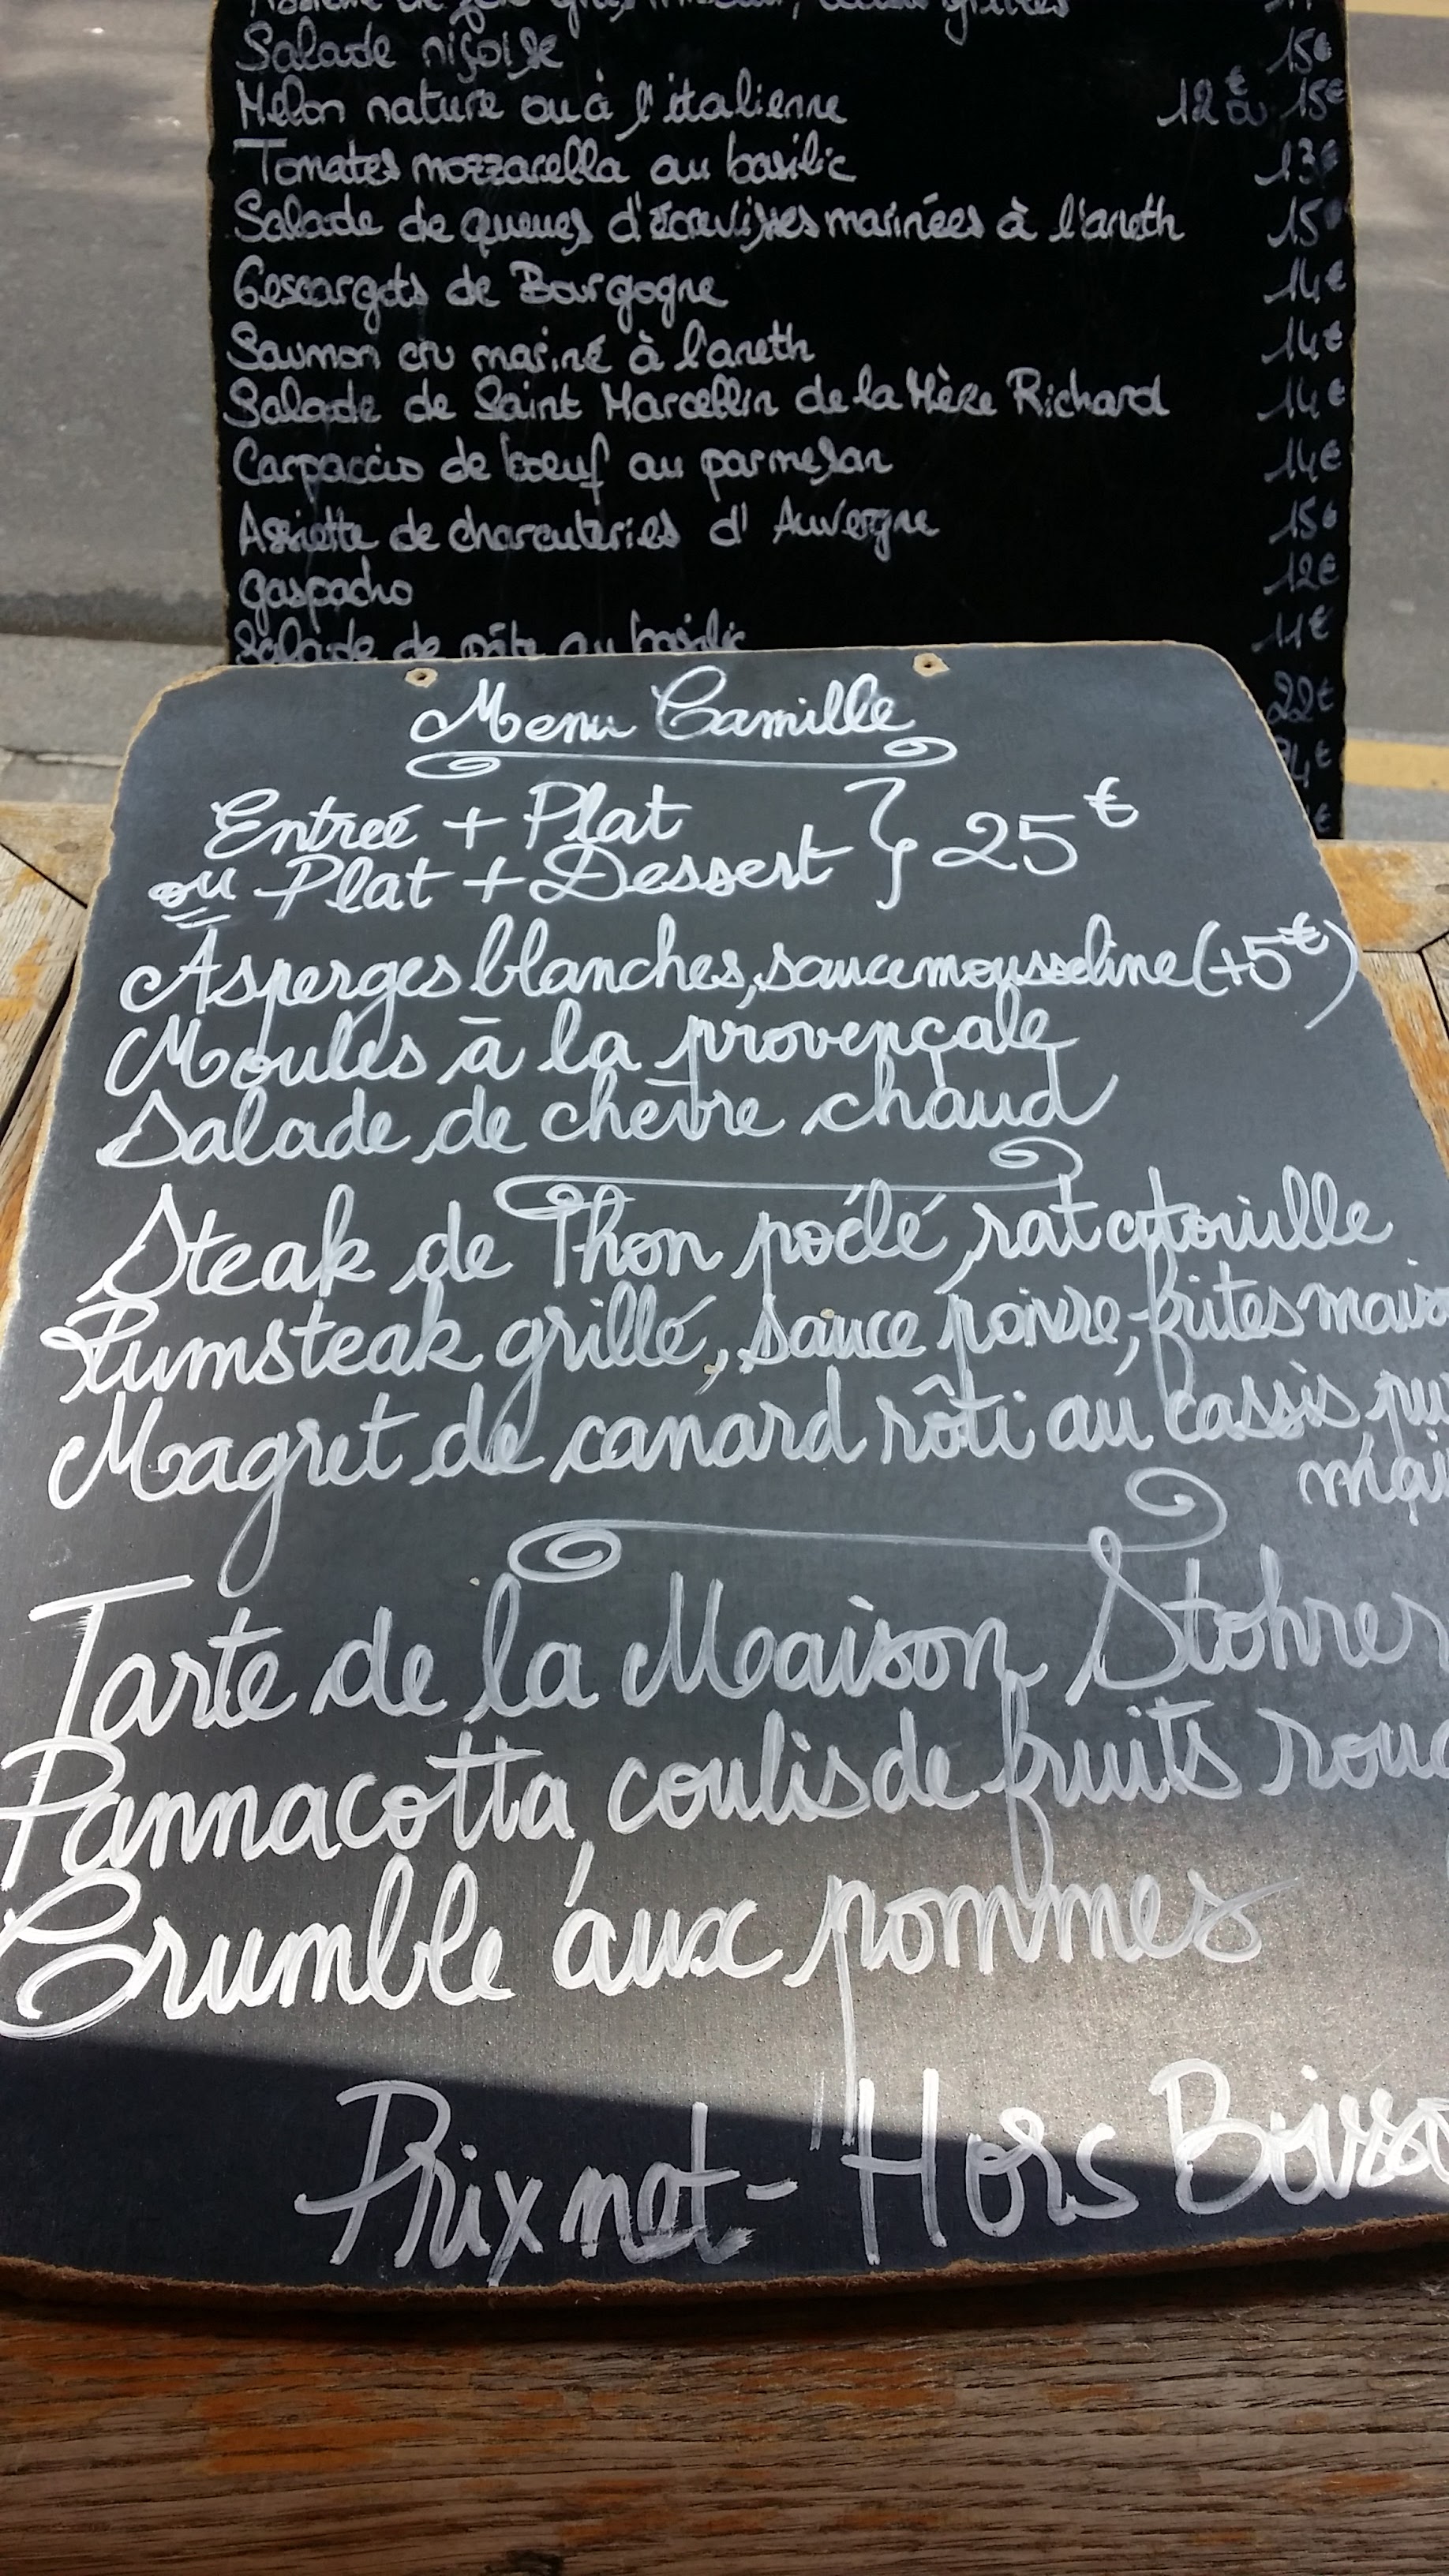 Salade niçoise 15€
Melon nature ou à l'italienne 12€ ou 15€
Tomates mozzarella au basilic 13€
Salade de queues d'écrevisses marinées à l'aneth 15€
6 escargots de Bourgogne 14€
Saumon cru mariné à l'aneth 14€
Salade de Saint Marcellin de la Mère Richard 14€
Carpaccio de boeuf au parmesan 14€
Assiette de charcuteries d'Auvergne 15€
gaspacho 12€
Salade de pâte au basilic 11€
22€
Menu Camille
Entreé + Plat
ou Plat + Dessert } 25€
Asperges blanches, sauce mousseline (+5€)
Moules à la provençale
Salade de chèvre chaud
Steak de Thon poêlé, ratatouille
Rumsteak grillé, sauce poivre, frites maiso
Magret de canard rôti au cassis pu
mai
Tarte de la Maison Stohrer
Pannacotta, coulis de fruits roug
Crumble aux pommes
Prix net - Hors Boisso